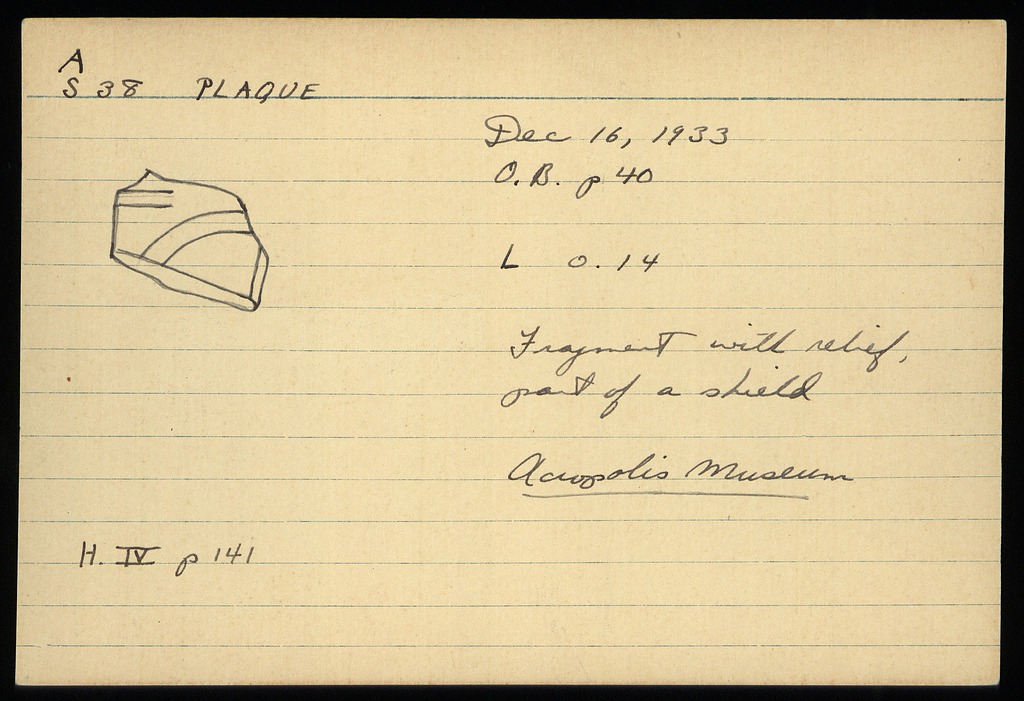 A
S 38 PLAQUE
Dec 16, 1933
O.B. p 40
L 0.14
Fragment with relief,
part of a shield
Acropolis Museum
H. IV p 141